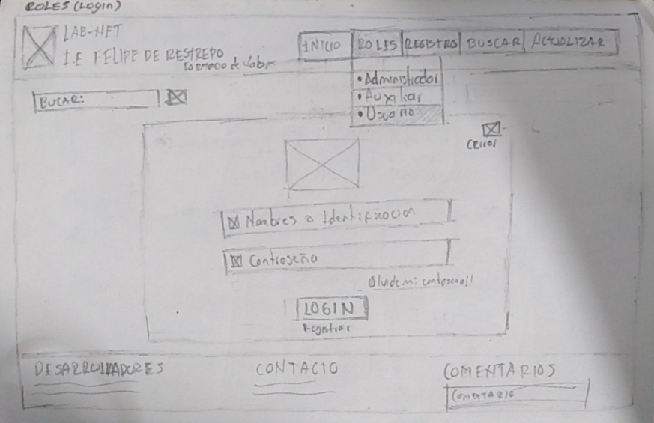 ROLES (Login)
LAB-NET
I.E FELIPE DE RESTREPO
INICIO ROLES REGISTRO BUSCAR ACTUALIZAR
• Administrador
• Auxiliar
• Usuario
BUCAR:
Cerrar
Nombres o Identificacion
Contraseña
Olvide mi contraseña!!
LOGIN
Registrar
DESARROLLADORES CONTACTO COMENTARIOS
Comentario